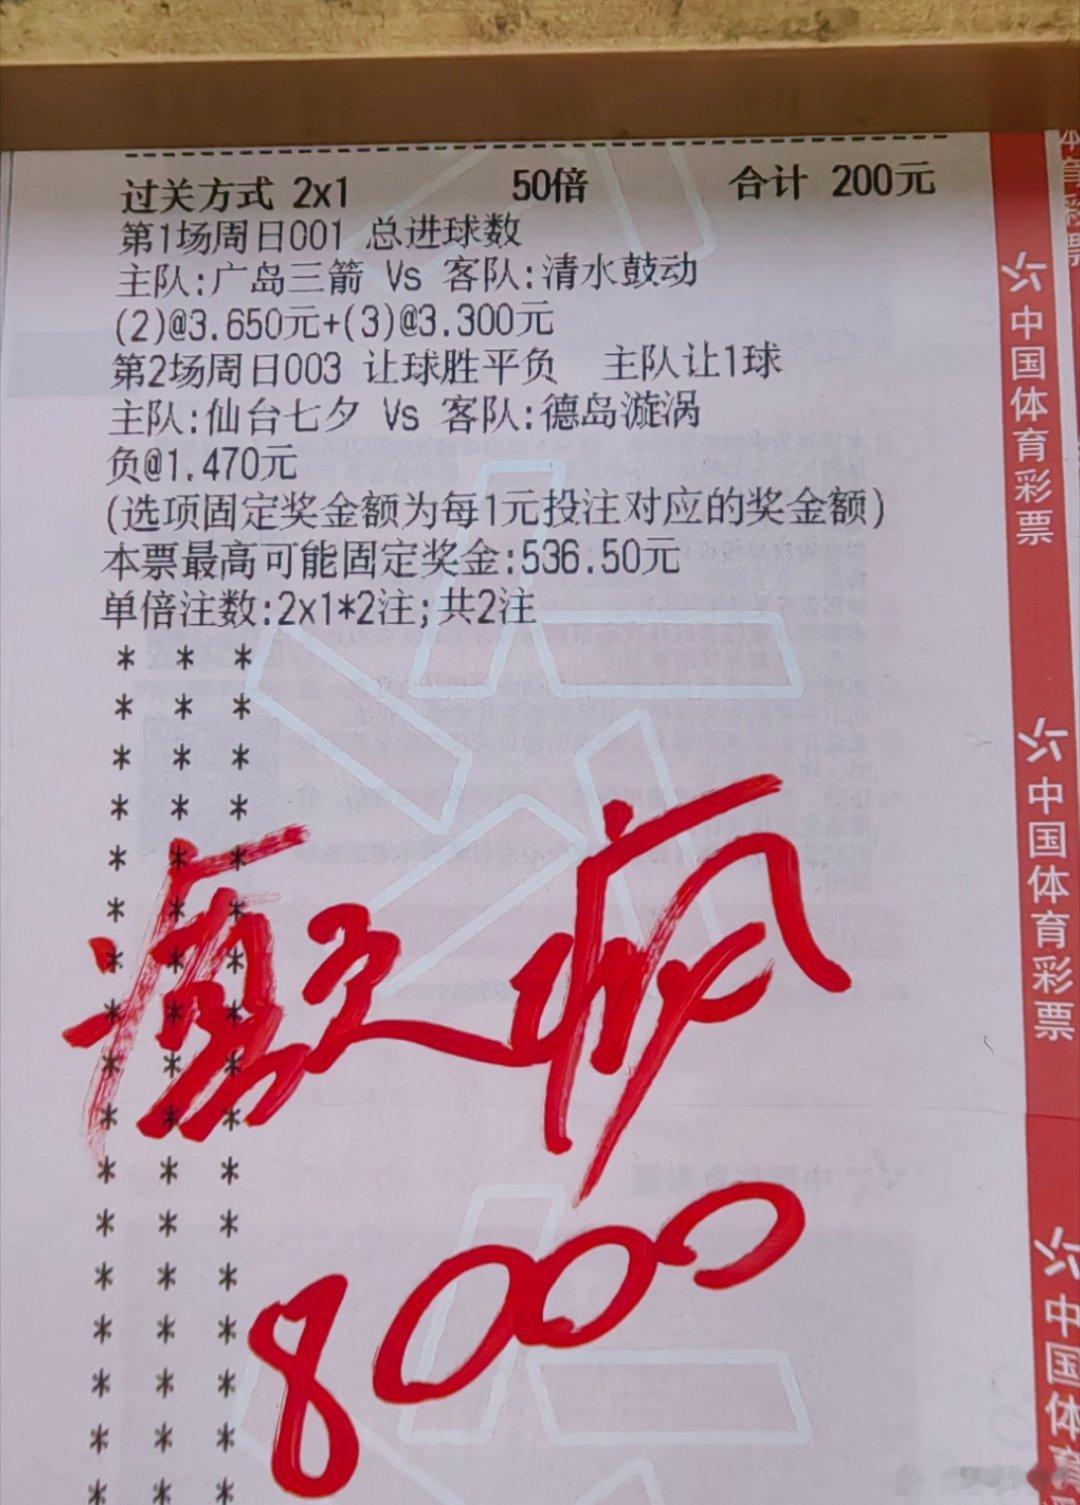 过关方式 2x1 50倍 合计 200元
第1场周日001 总进球数
主队:广岛三箭 Vs 客队:清水鼓动
(2)@3.650元+(3)@3.300元
第2场周日003 让球胜平负 主队让1球
主队:仙台七夕 Vs 客队:德岛漩涡
负@1.470元
(选项固定奖金额为每1元投注对应的奖金额)
本票最高可能固定奖金:536.50元
单倍注数:2x1*2注;共2注
* * *
* * *
* * *
* * *
* * *
* * *
* * *
* * *
* * *
* * *
* * *
* * *
* * *
* * *
* * *
* * *
* * *
疯
8000
中国体育彩票
中国体育彩票
中国体育